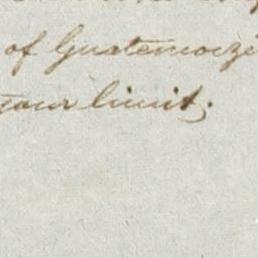 of Guatemozi
your limit.